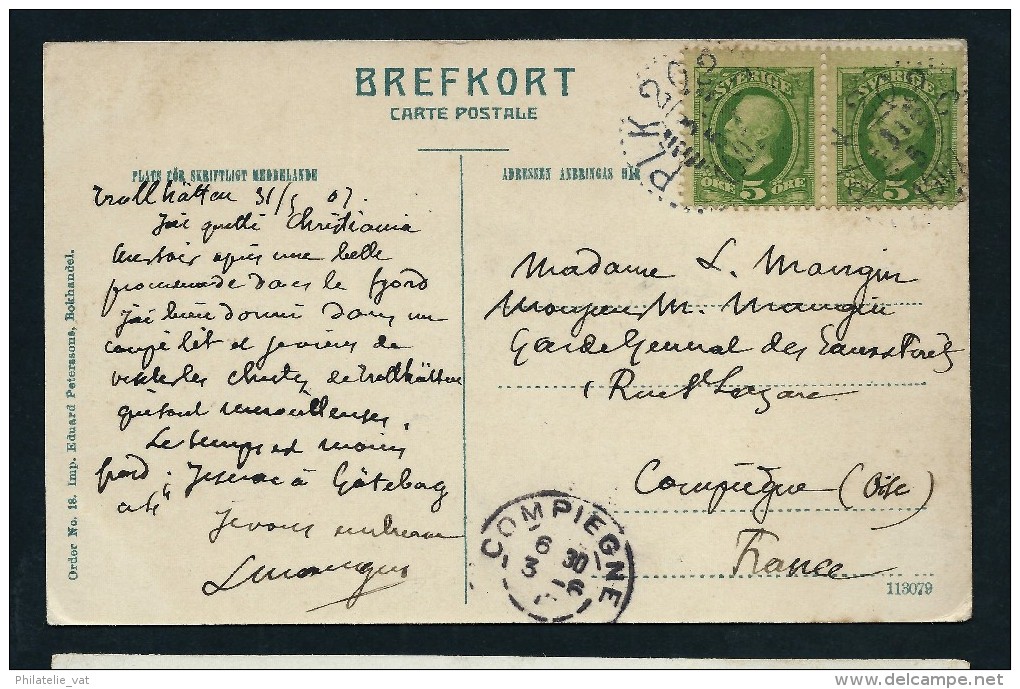 BREFKORT
CARTE POSTALE
PLATS FÖR SKRIFTLIGT MEDDELANDE
ADRESSEN ANBRINGAS HÄR
SVERIGE
ÖRE 5 ÖRE
SVERIGE
5
PLK 2
Trollhätten 31/5 07.
J'ai quitté Christiania
hier soir après une belle
promenade dans le fjord
J'ai bien dormi dans un
coupé lit et je viens de
visiter les chutes de Trollhätten
qui sont merveilleuses.
Le temps est moins
froid; Je serai à Göteborg
Je vous embrasse
LMangin
Madame L. Mangin
M. Mangin
Garde General des Eaux et Forêts
Rue St Lazare
Compiègne (Oise)
France
COMPIEGNE
6 30
3 -6
113079
Order No. 18. Imp. Eduard Peterssons, Bokhandel.
Philatelie_vat